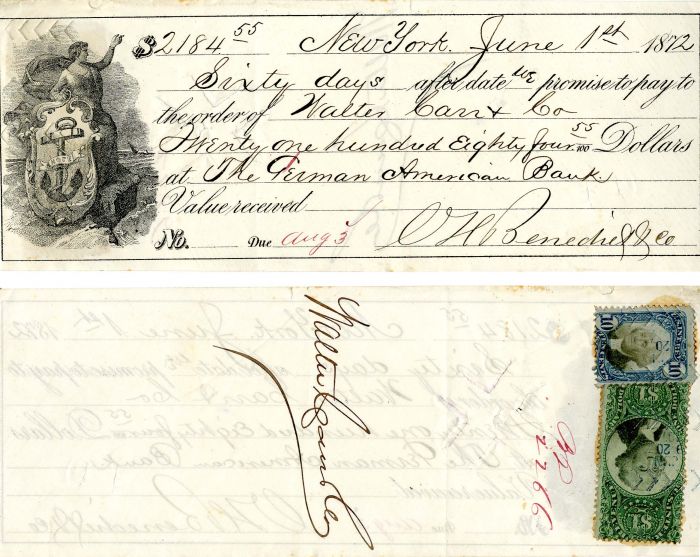 $2184 55 New York. June 1st 1872
Sixty days after date we promise to pay to
the order of Walter Carr & Co
Twenty one hundred Eighty four 55/100 Dollars
at The German American Bank
Value received
No. Due Aug 3 C H Benedict & Co
Walter Carr & Co
2266
10 CENTS 10
$1 $1